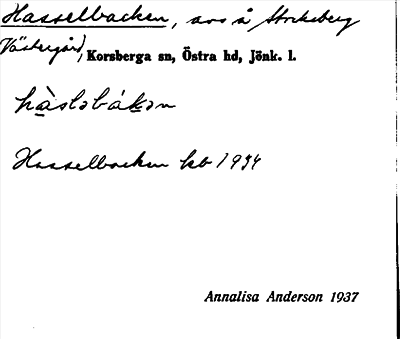 Hasselbacken, avs å Stockeberg
Västergård, Korsberga sn, Östra hd, Jönk. l.
hàslobákən
Hasselbacken kb 1934
Annalisa Anderson 1937